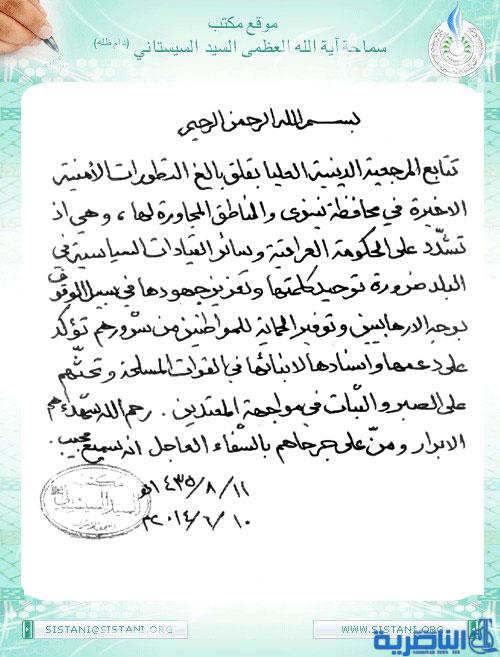 موقع مكتب
سماحة آية الله العظمى السيد السيستاني (دام ظله)
بسم الله الرحمن الرحيم
تتابع المرجعية الدينية العليا بقلق بالغ التطورات الأمنية
الاخيرة في محافظة نينوى والمناطق المجاورة لها، وهي اذ
تشدّد على الحكومة العراقية وسائر القيادات السياسية في
البلد ضرورة توحيد كلمتها وتعزيز جهودها في سبيل الوقوف
بوجه الارهابيين وتوفير الحماية للمواطنين من شرورهم تؤكد
على دعمها واسنادها لابنائها في القوات المسلحة وتحثّهم
على الصبر والثبات في مواجهة المعتدين. رحم الله شهداءهم
الابرار ومنّ على جرحاهم بالشفاء العاجل انه سميع مجيب.
١١/٨/١٤٣٥هـ
١٠/٦/٢٠١٤م
مكتب
السيد السيستاني
SISTANI@SISTANI.ORG
WWW.SISTANI.ORG
الناصرية